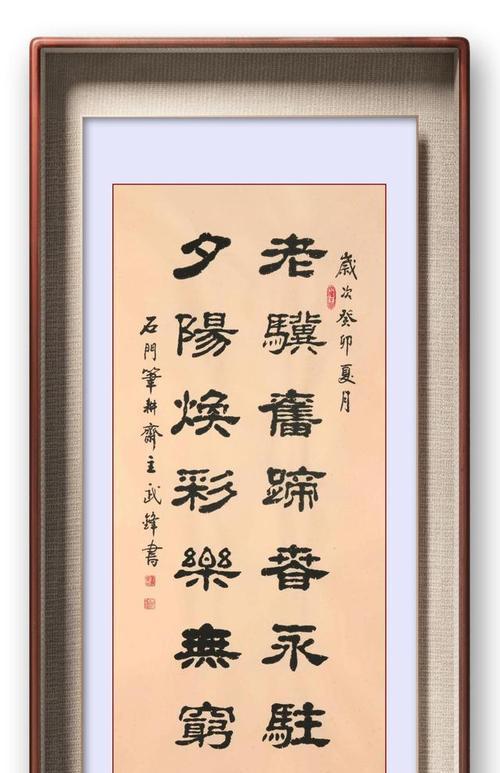 歲次癸卯夏月
老驥奮蹄春永駐
夕陽煥彩樂無窮
石門筆耕齋主武鋒書